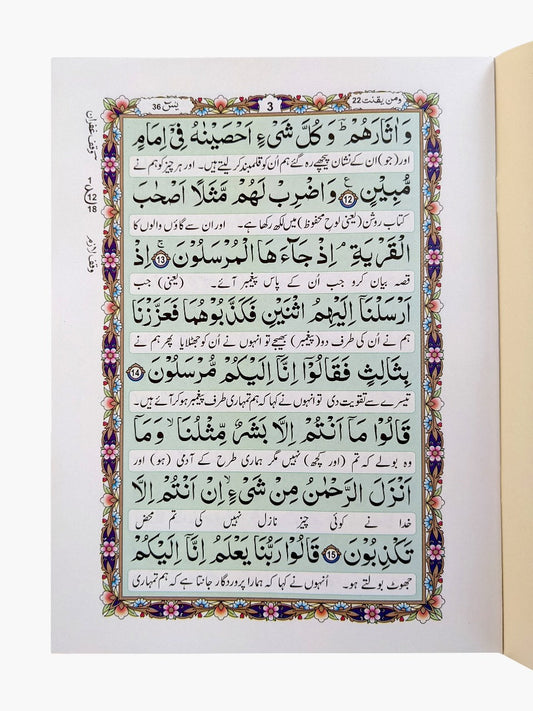 ومن یقنت 22
3
یٰسٓ 36
وَاٰثَارَهُمْ ؕ وَكُلَّ شَیْءٍ اَحْصَیْنٰهُ فِیْۤ اِمَامٍ
اور (جو) ان کے نشان پیچھے رہ گئے ہم اُن کو قلمبند کر لیتے ہیں۔ اور ہر چیز کو ہم نے
مُّبِیْنٍ 12 وَاضْرِبْ لَهُمْ مَّثَلًا اَصْحٰبَ
کتاب روشن (یعنی لوح محفوظ) میں لکھ رکھا ہے۔ اور ان سے گاؤں والوں کا
الْقَرْیَةِ ۘ اِذْ جَآءَهَا الْمُرْسَلُوْنَ 13 اِذْ
قصہ بیان کرو جب اُن کے پاس پیغمبر آئے۔ (یعنی) جب
اَرْسَلْنَاۤ اِلَیْهِمُ اثْنَیْنِ فَكَذَّبُوْهُمَا فَعَزَّزْنَا
ہم نے اُن کی طرف دو (پیغمبر) بھیجے تو انہوں نے اُن کو جھٹلایا پھر ہم نے
بِثَالِثٍ فَقَالُوْۤا اِنَّاۤ اِلَیْكُمْ مُّرْسَلُوْنَ 14
تیسرے سے تقویت دی تو انہوں نے کہا کہ ہم تمہاری طرف پیغمبر ہو کر آئے ہیں۔
قَالُوْا مَاۤ اَنْتُمْ اِلَّا بَشَرٌ مِّثْلُنَا ۙ وَمَاۤ
وہ بولے کہ تم (اور کچھ) نہیں مگر ہماری طرح کے آدمی (ہو) اور
اَنْزَلَ الرَّحْمٰنُ مِنْ شَیْءٍ ۙ اِنْ اَنْتُمْ اِلَّا
خدا نے کوئی چیز نازل نہیں کی تم محض
تَكْذِبُوْنَ 15 قَالُوْا رَبُّنَا یَعْلَمُ اِنَّاۤ اِلَیْكُمْ
جھوٹ بولتے ہو۔ اُنہوں نے کہا کہ ہمارا پروردگار جانتا ہے کہ ہم تمہاری
وقف غفران
1
ع 12
18
وقف لازم